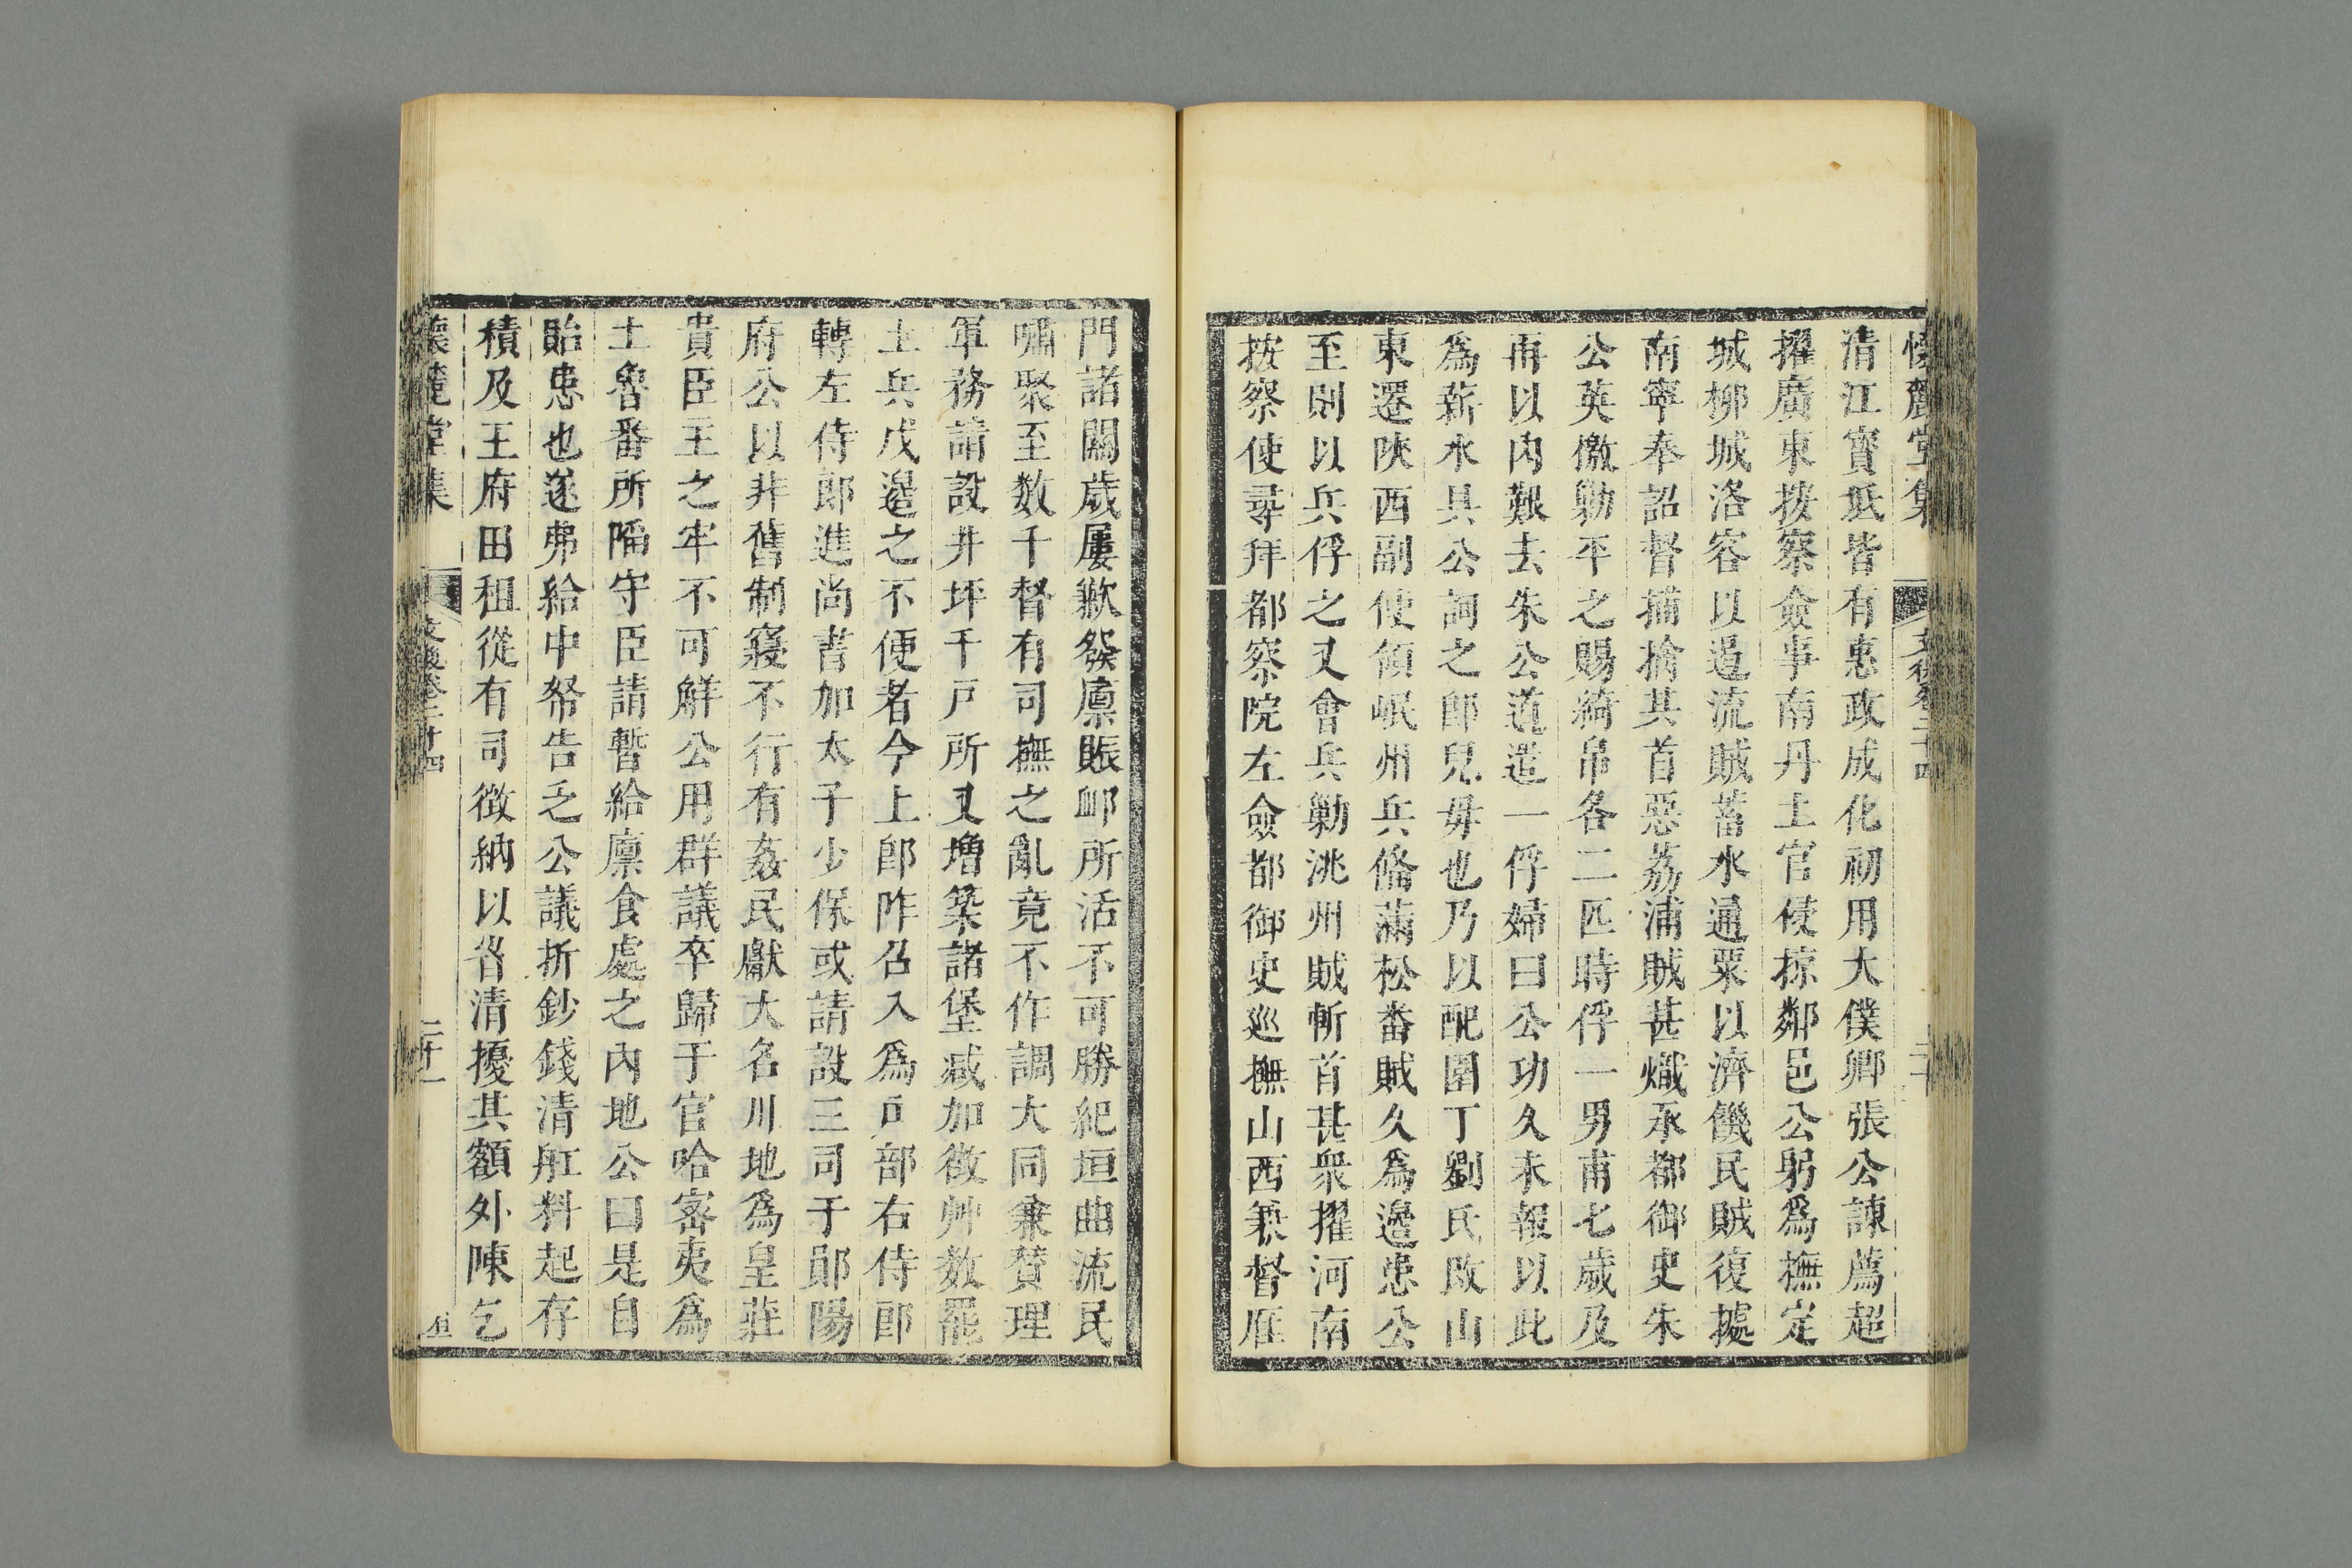 懷麓堂集 文後卷二十四
清江寶坻皆有惠政成化初用大僕卿張公諫薦超
擢廣東按察僉事南丹土官侵掠鄰邑公躬爲撫定
城柳城洛容以遏流賊蓄水通粟以濟饑民賊復據
南寧奉詔督捕擒其首惡荔浦賊甚熾承都御史朱
公英檄勦平之賜綺帛各二匹時俘一男甫七歲及
再以內艱去朱公道遣一俘婦曰公功久未報以此
爲薪水具公詞之郎兒毋也乃以配圉丁劉氏改山
東遷陜西副使領岷州兵備滿松番賊久爲邊患公
至則以兵俘之又會兵勦洮州賊斬首甚衆擢河南
按察使尋拜都察院左僉都御史巡撫山西兼督雁
門諸關歲屢歉發廩賑卹所活不可勝紀垣曲流民
嘯聚至数千督有司撫之亂竟不作調大同兼賛理
軍務請設井坪千戶所又增築諸堡减加徵艸数罷
土兵戍邊之不便者今上卽阼召入爲戶部右侍郎
轉左侍郎進尚書加太子少保或請設三司于鄖陽
府公以非舊制寢不行有姦民獻大名川地爲皇莊
貴臣王之牢不可解公用群議卒歸于官哈密夷爲
土魯番所陷守臣請暫給廩食處之內地公曰是自
貽患也遂弗給中帑告乏公議折鈔錢清舡料起存
積及王府田租從有司徵納以省清擾其額外陳乞
懷麓堂集 文後卷二十四 二十一